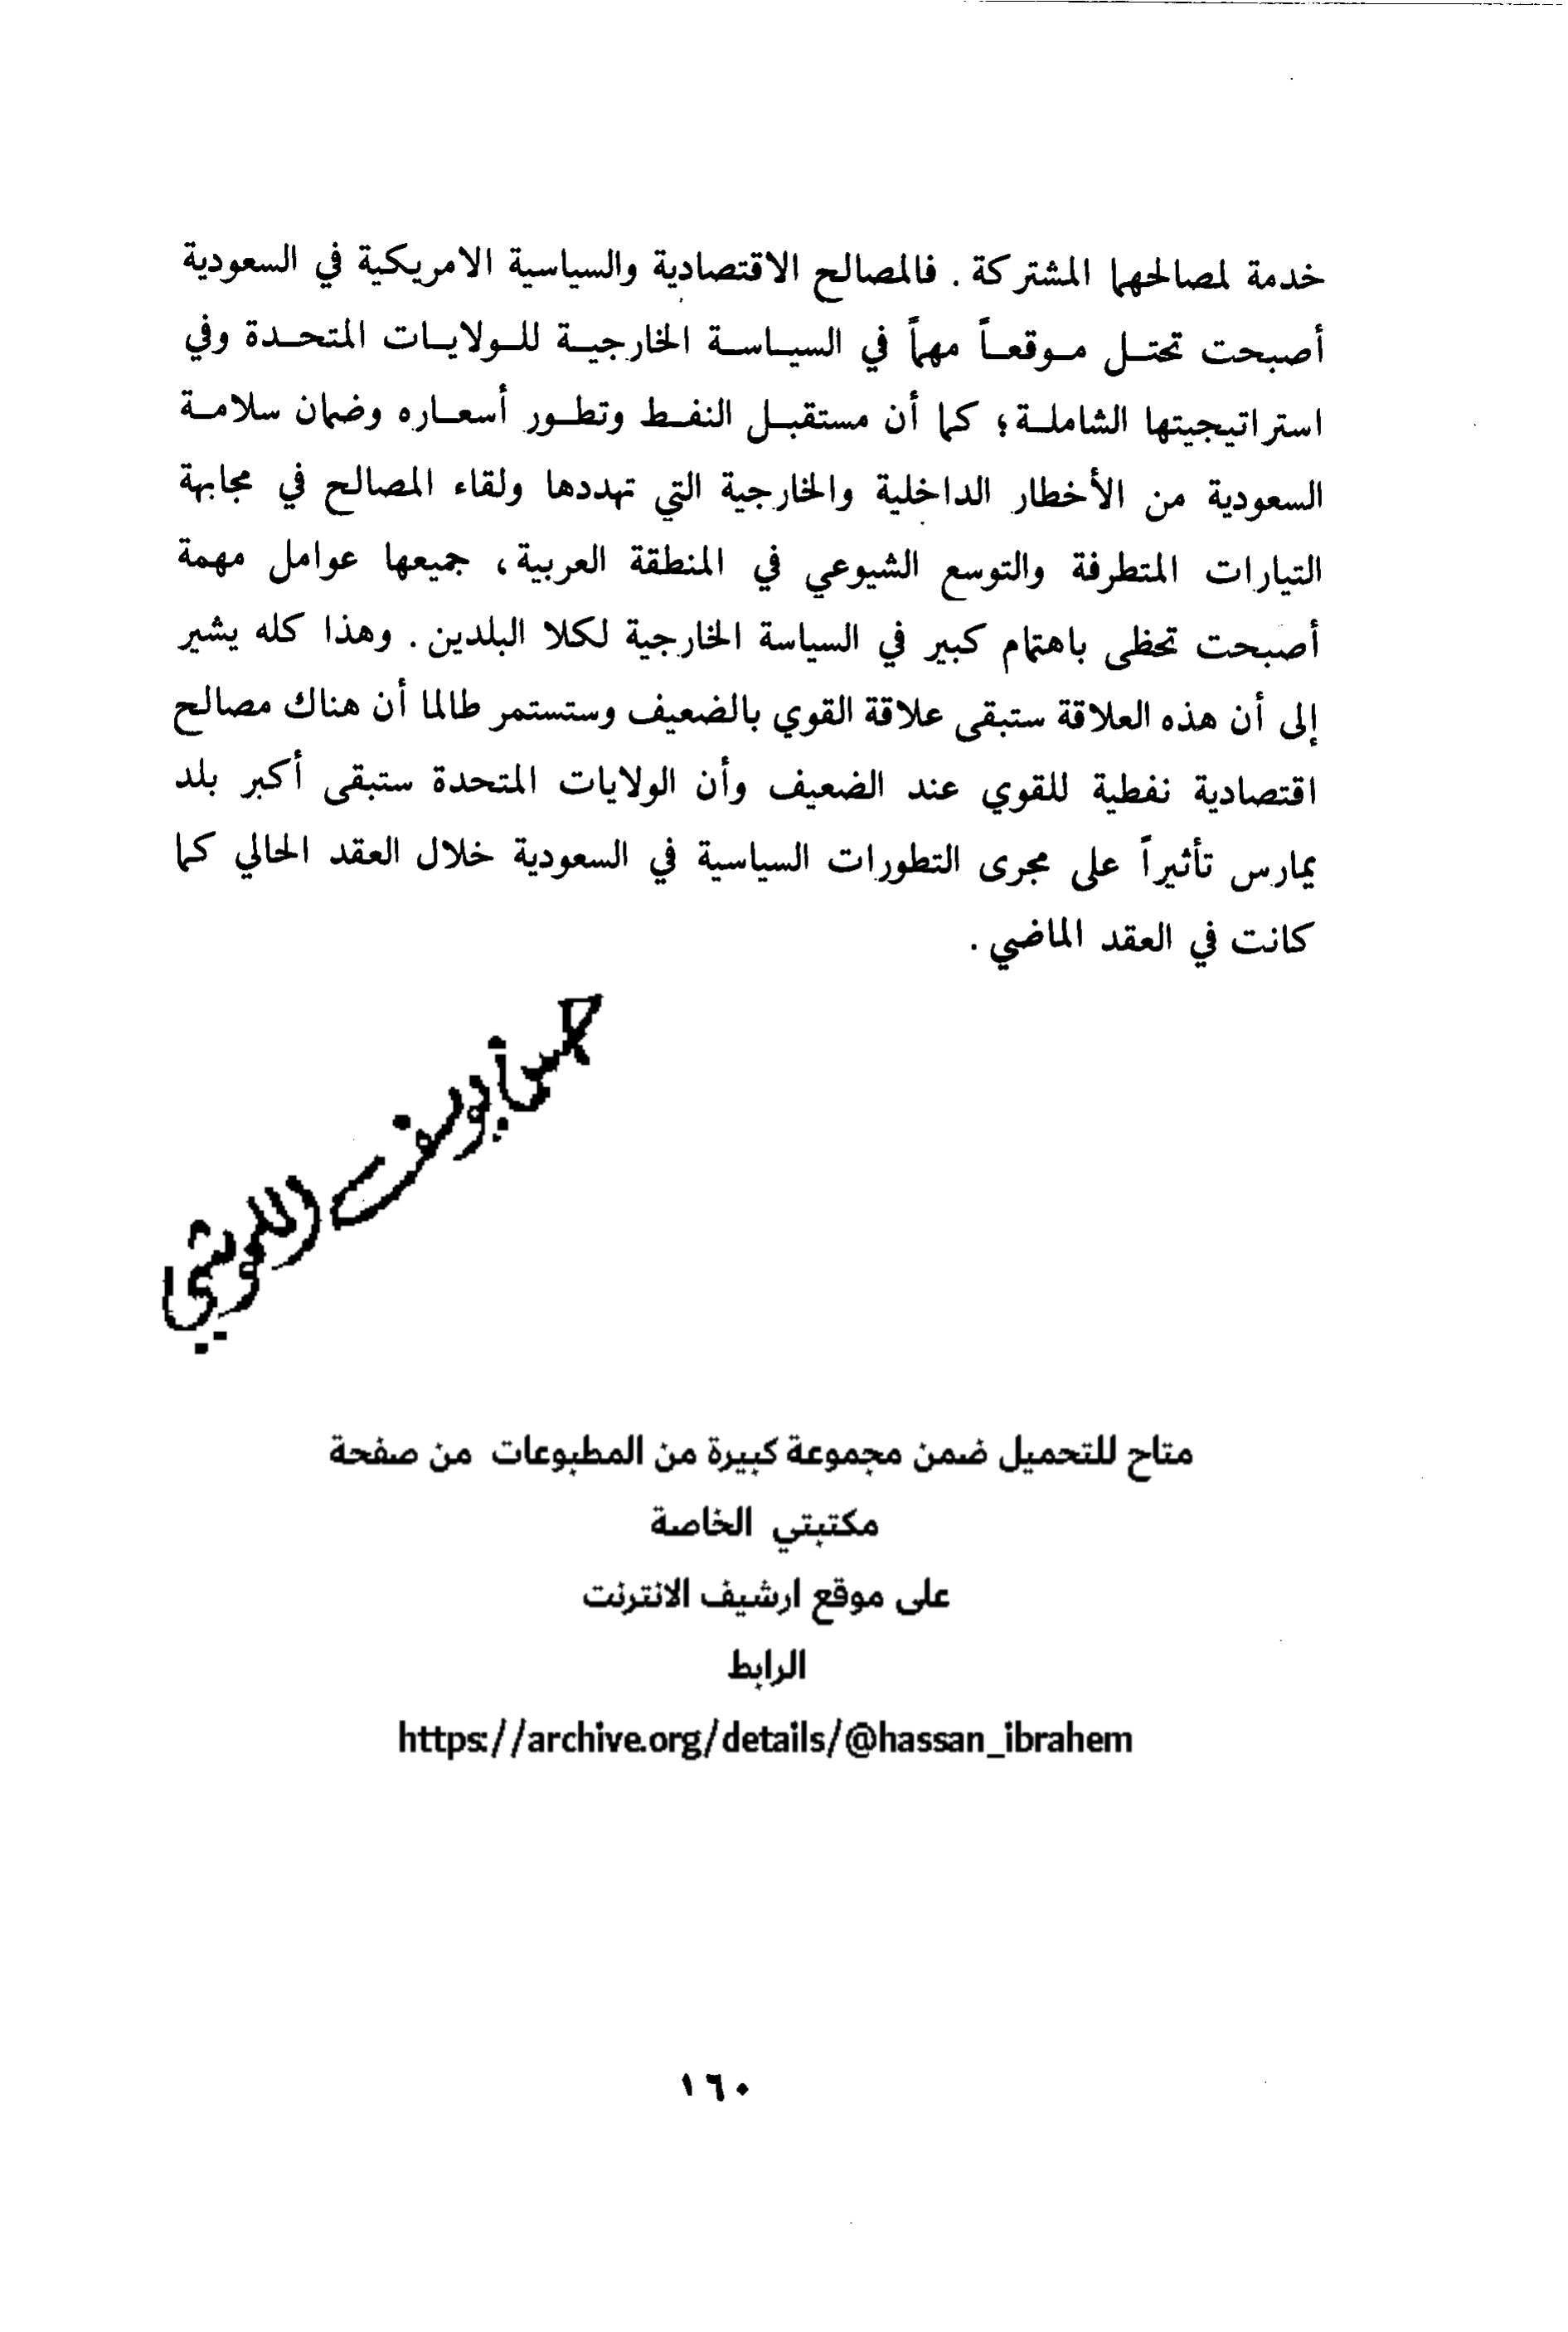 خدمة لمصالحهما المشتركة . فالمصالح الاقتصادية والسياسية الامريكية في السعودية
أصبحت تحتل موقعاً مهماً في السياسة الخارجية للولايات المتحدة وفي
استراتيجيتها الشاملة؛ كما أن مستقبل النفط وتطور أسعاره وضمان سلامة
السعودية من الأخطار الداخلية والخارجية التي تهددها ولقاء المصالح في مجابهة
التيارات المتطرفة والتوسع الشيوعي في المنطقة العربية، جميعها عوامل مهمة
أصبحت تحظى باهتمام كبير في السياسة الخارجية لكلا البلدين . وهذا كله يشير
إلى أن هذه العلاقة ستبقى علاقة القوي بالضعيف وستستمر طالما أن هناك مصالح
اقتصادية نفطية للقوي عند الضعيف وأن الولايات المتحدة ستبقى أكبر بلد
يمارس تأثيراً على مجرى التطورات السياسية في السعودية خلال العقد الحالي كما
كانت في العقد الماضي .
متاح للتحميل ضمن مجموعة كبيرة من المطبوعات من صفحة
مكتبتي الخاصة
على موقع ارشيف الانترنت
الرابط
https://archive.org/details/@hassan_ibrahem
١٦٠